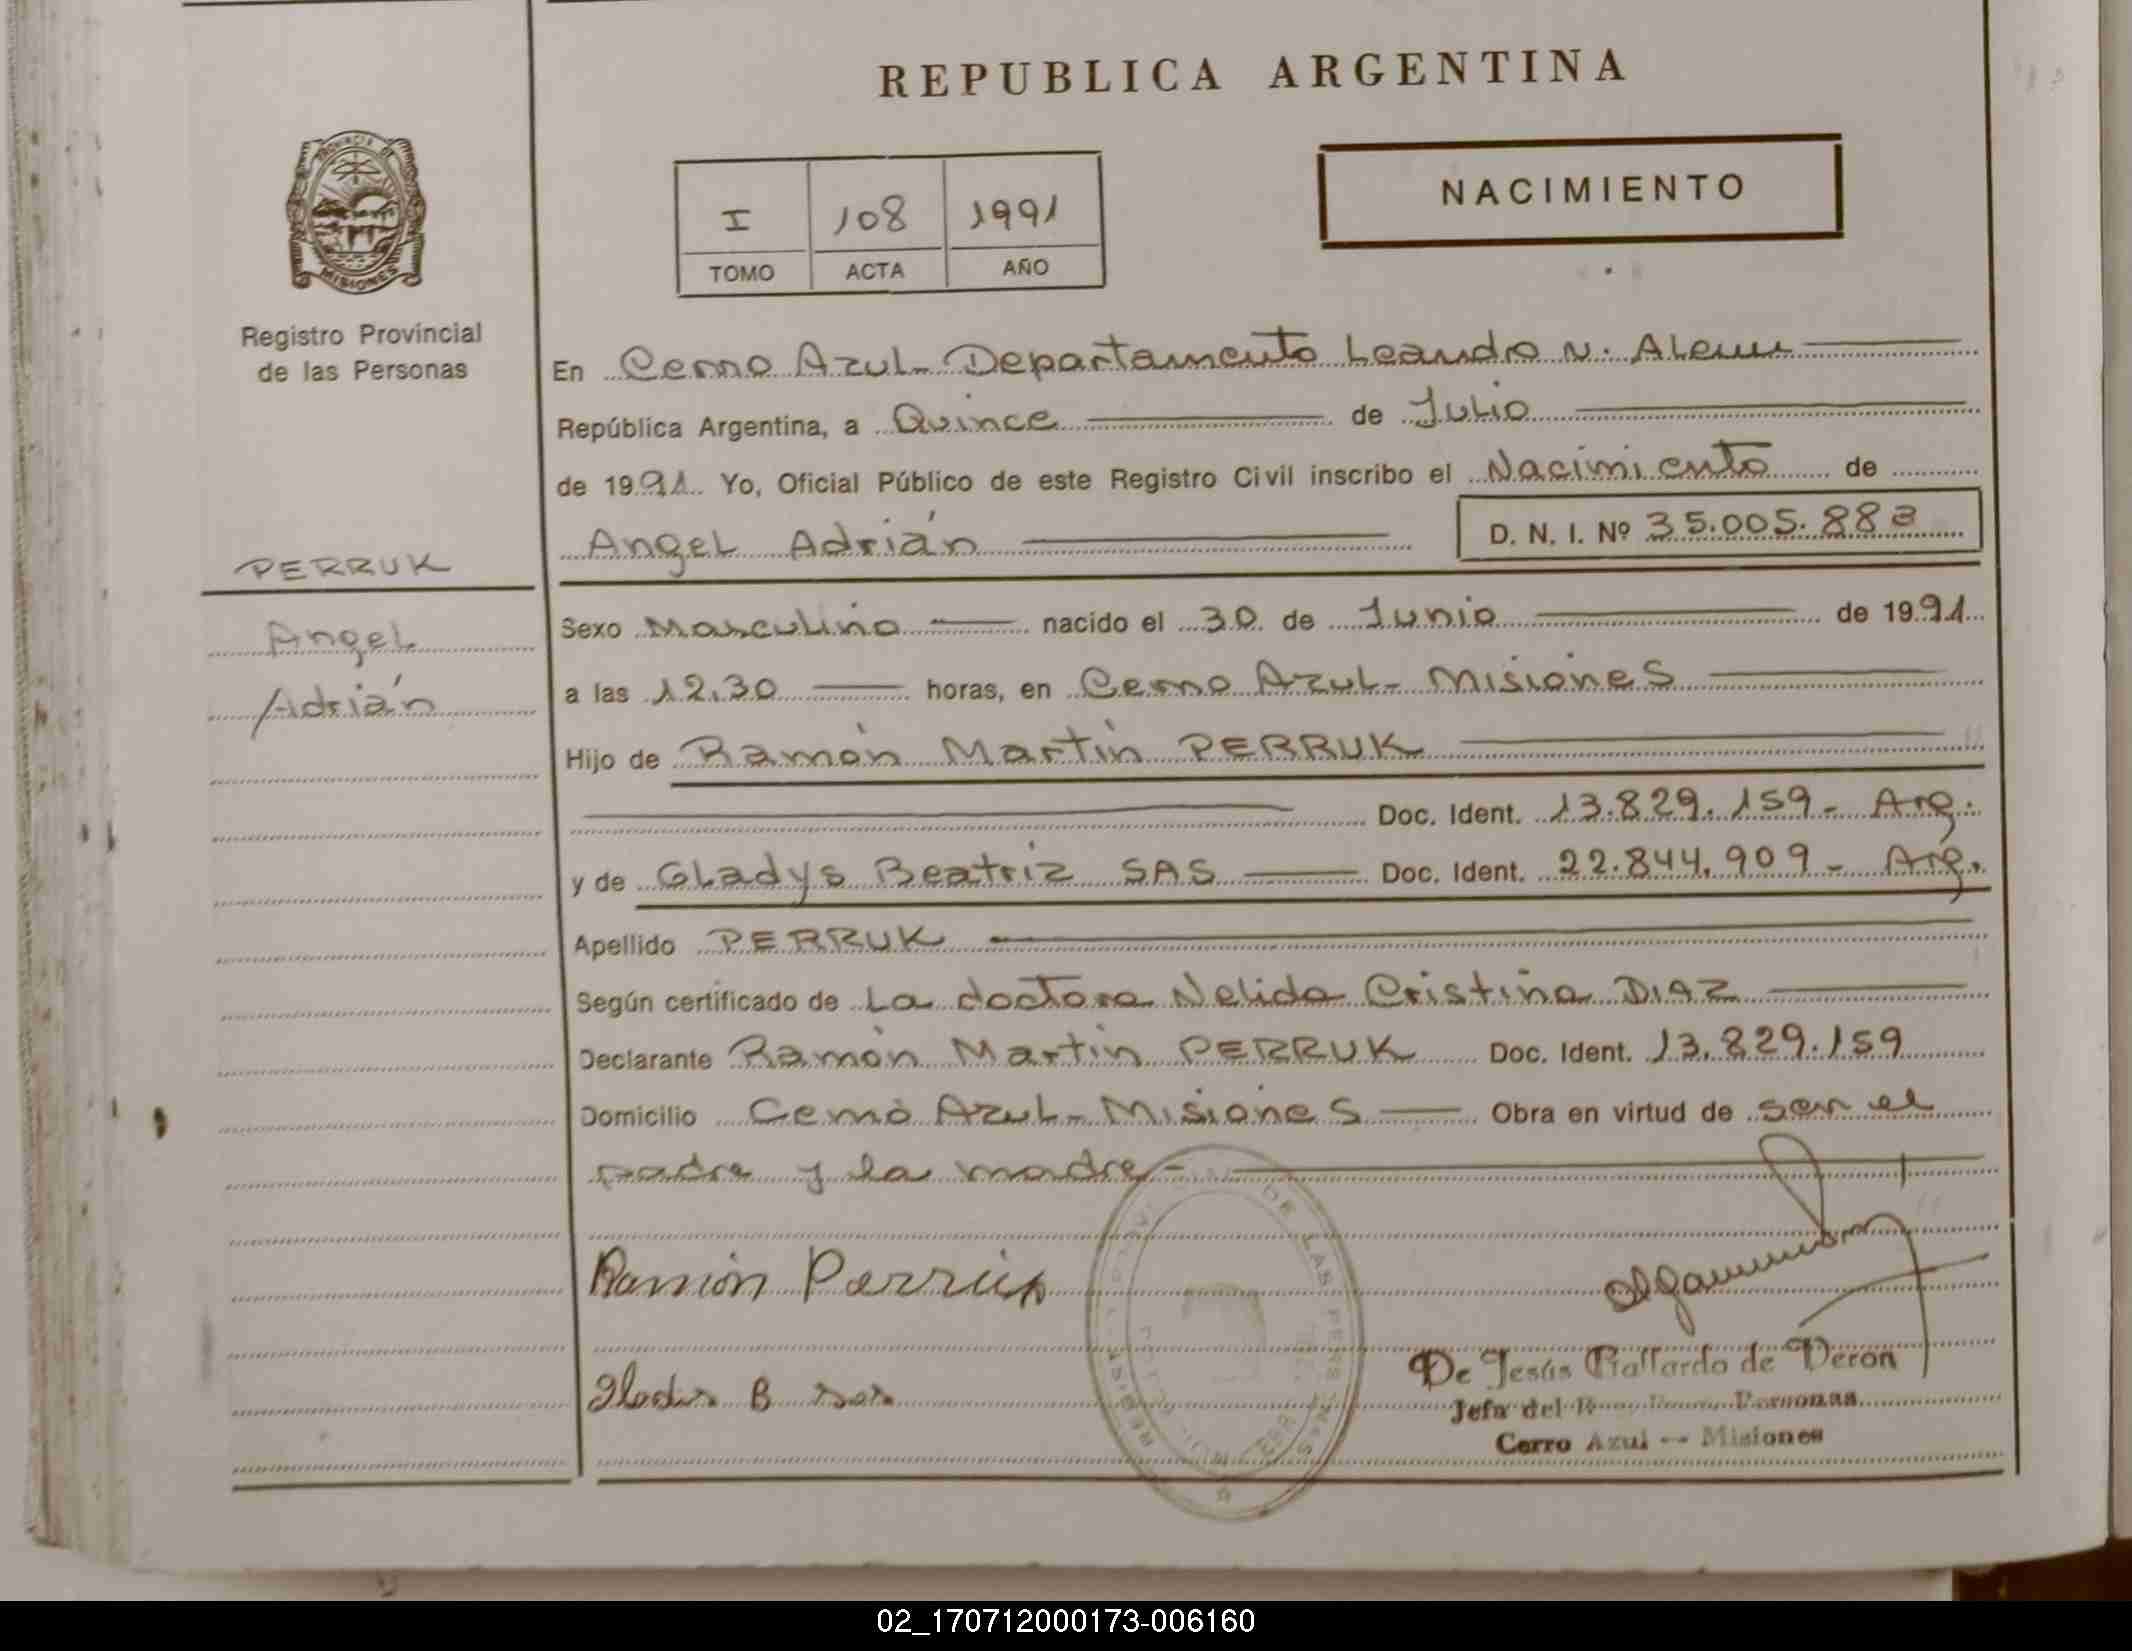 REPUBLICA ARGENTINA
PROVINCIA DE
MISIONES
Registro Provincial
de las Personas
I 108 1991
TOMO ACTA AÑO
NACIMIENTO
En Cerro Azul - Departamento Leandro N. Alem
República Argentina, a Quince de Julio
de 1991. Yo, Oficial Público de este Registro Civil inscribo el Nacimiento de
Angel Adrián D. N. I. Nº 35.005.883
PERRUK
Angel
Adrián
Sexo Masculino nacido el 30 de Junio de 1991
a las 12.30 horas, en Cerro Azul - Misiones
Hijo de Ramón Martín PERRUK
Doc. Ident. 13.829.159 - Arg.
y de Gladys Beatriz SAS Doc. Ident. 22.844.909 - Arg.
Apellido PERRUK
Según certificado de La doctora Nelida Cristina DIAZ
Declarante Ramón Martín PERRUK Doc. Ident. 13.829.159
Domicilio Cerro Azul - Misiones Obra en virtud de ser el
padre y la madre -
DE LAS PERSONAS
Ramón Perruk
Gladis B sas
De Jesús Gallardo de Verón
Jefa del Personas
Cerro Azul - Misiones
02_170712000173-006160